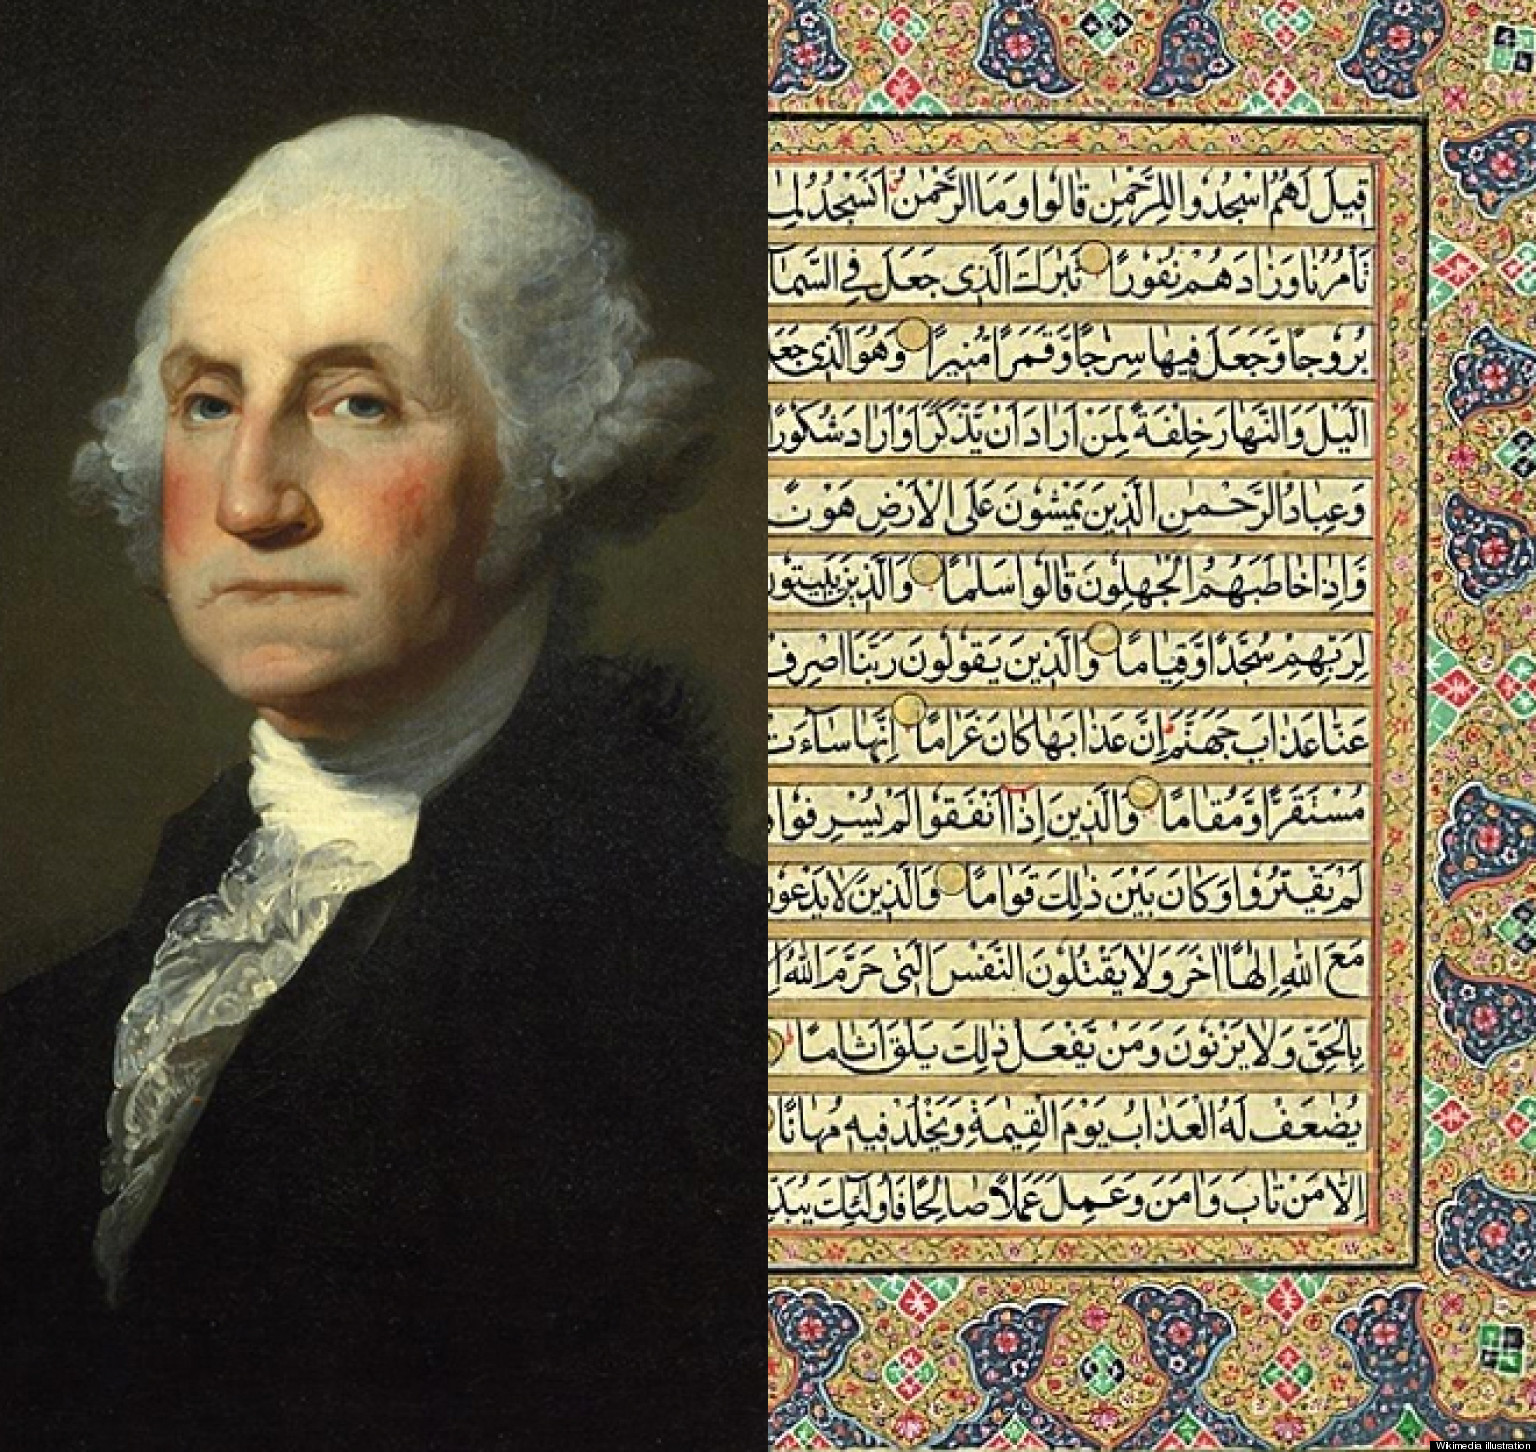 قِيلَ لَهُمُ اسْجُدُوا لِلرَّحْمٰنِ قَالُوا وَمَا الرَّحْمٰنُ اَنَسْجُدُ
تَأْمُرُنَا وَزَادَهُمْ نُفُورًا تَبٰرَكَ الَّذِى جَعَلَ فِى السَّمَا
بُرُوجًا وَجَعَلَ فِيهَا سِرٰجًا وَقَمَرًا مُنِيرًا وَهُوَ الَّذِى جَعَ
الَّيْلَ وَالنَّهَارَ خِلْفَةً لِمَنْ اَرَادَ اَنْ يَذَّكَّرَ اَوْ اَرَادَ شُكُورًا
وَعِبَادُ الرَّحْمٰنِ الَّذِينَ يَمْشُونَ عَلَى الْاَرْضِ هَوْنً
وَاِذَا خَاطَبَهُمُ الْجٰهِلُونَ قَالُوا سَلٰمًا وَالَّذِينَ يَبِيتُونَ
لِرَبِّهِمْ سُجَّدًا وَقِيَامًا وَالَّذِينَ يَقُولُونَ رَبَّنَا اصْرِفْ
عَنَّا عَذَابَ جَهَنَّمَ اِنَّ عَذَابَهَا كَانَ غَرَامًا اِنَّهَا سَاۤءَتْ
مُسْتَقَرًّا وَمُقَامًا وَالَّذِينَ اِذَا اَنْفَقُوا لَمْ يُسْرِفُوا وَ
لَمْ يَقْتُرُوا وَكَانَ بَيْنَ ذٰلِكَ قَوَامًا وَالَّذِينَ لَا يَدْعُونَ
مَعَ اللّٰهِ اِلٰهًا اٰخَرَ وَلَا يَقْتُلُونَ النَّفْسَ الَّتِى حَرَّمَ اللّٰهُ
بِالْحَقِّ وَلَا يَزْنُونَ وَمَنْ يَفْعَلْ ذٰلِكَ يَلْقَ اَثَامًا
يُضٰعَفْ لَهُ الْعَذَابُ يَوْمَ الْقِيٰمَةِ وَيَخْلُدْ فِيهِ مُهَانًا
اِلَّا مَنْ تَابَ وَاٰمَنَ وَعَمِلَ عَمَلًا صَالِحًا فَاُولٰئِكَ يُبَدِّ
Wikimedia illustration